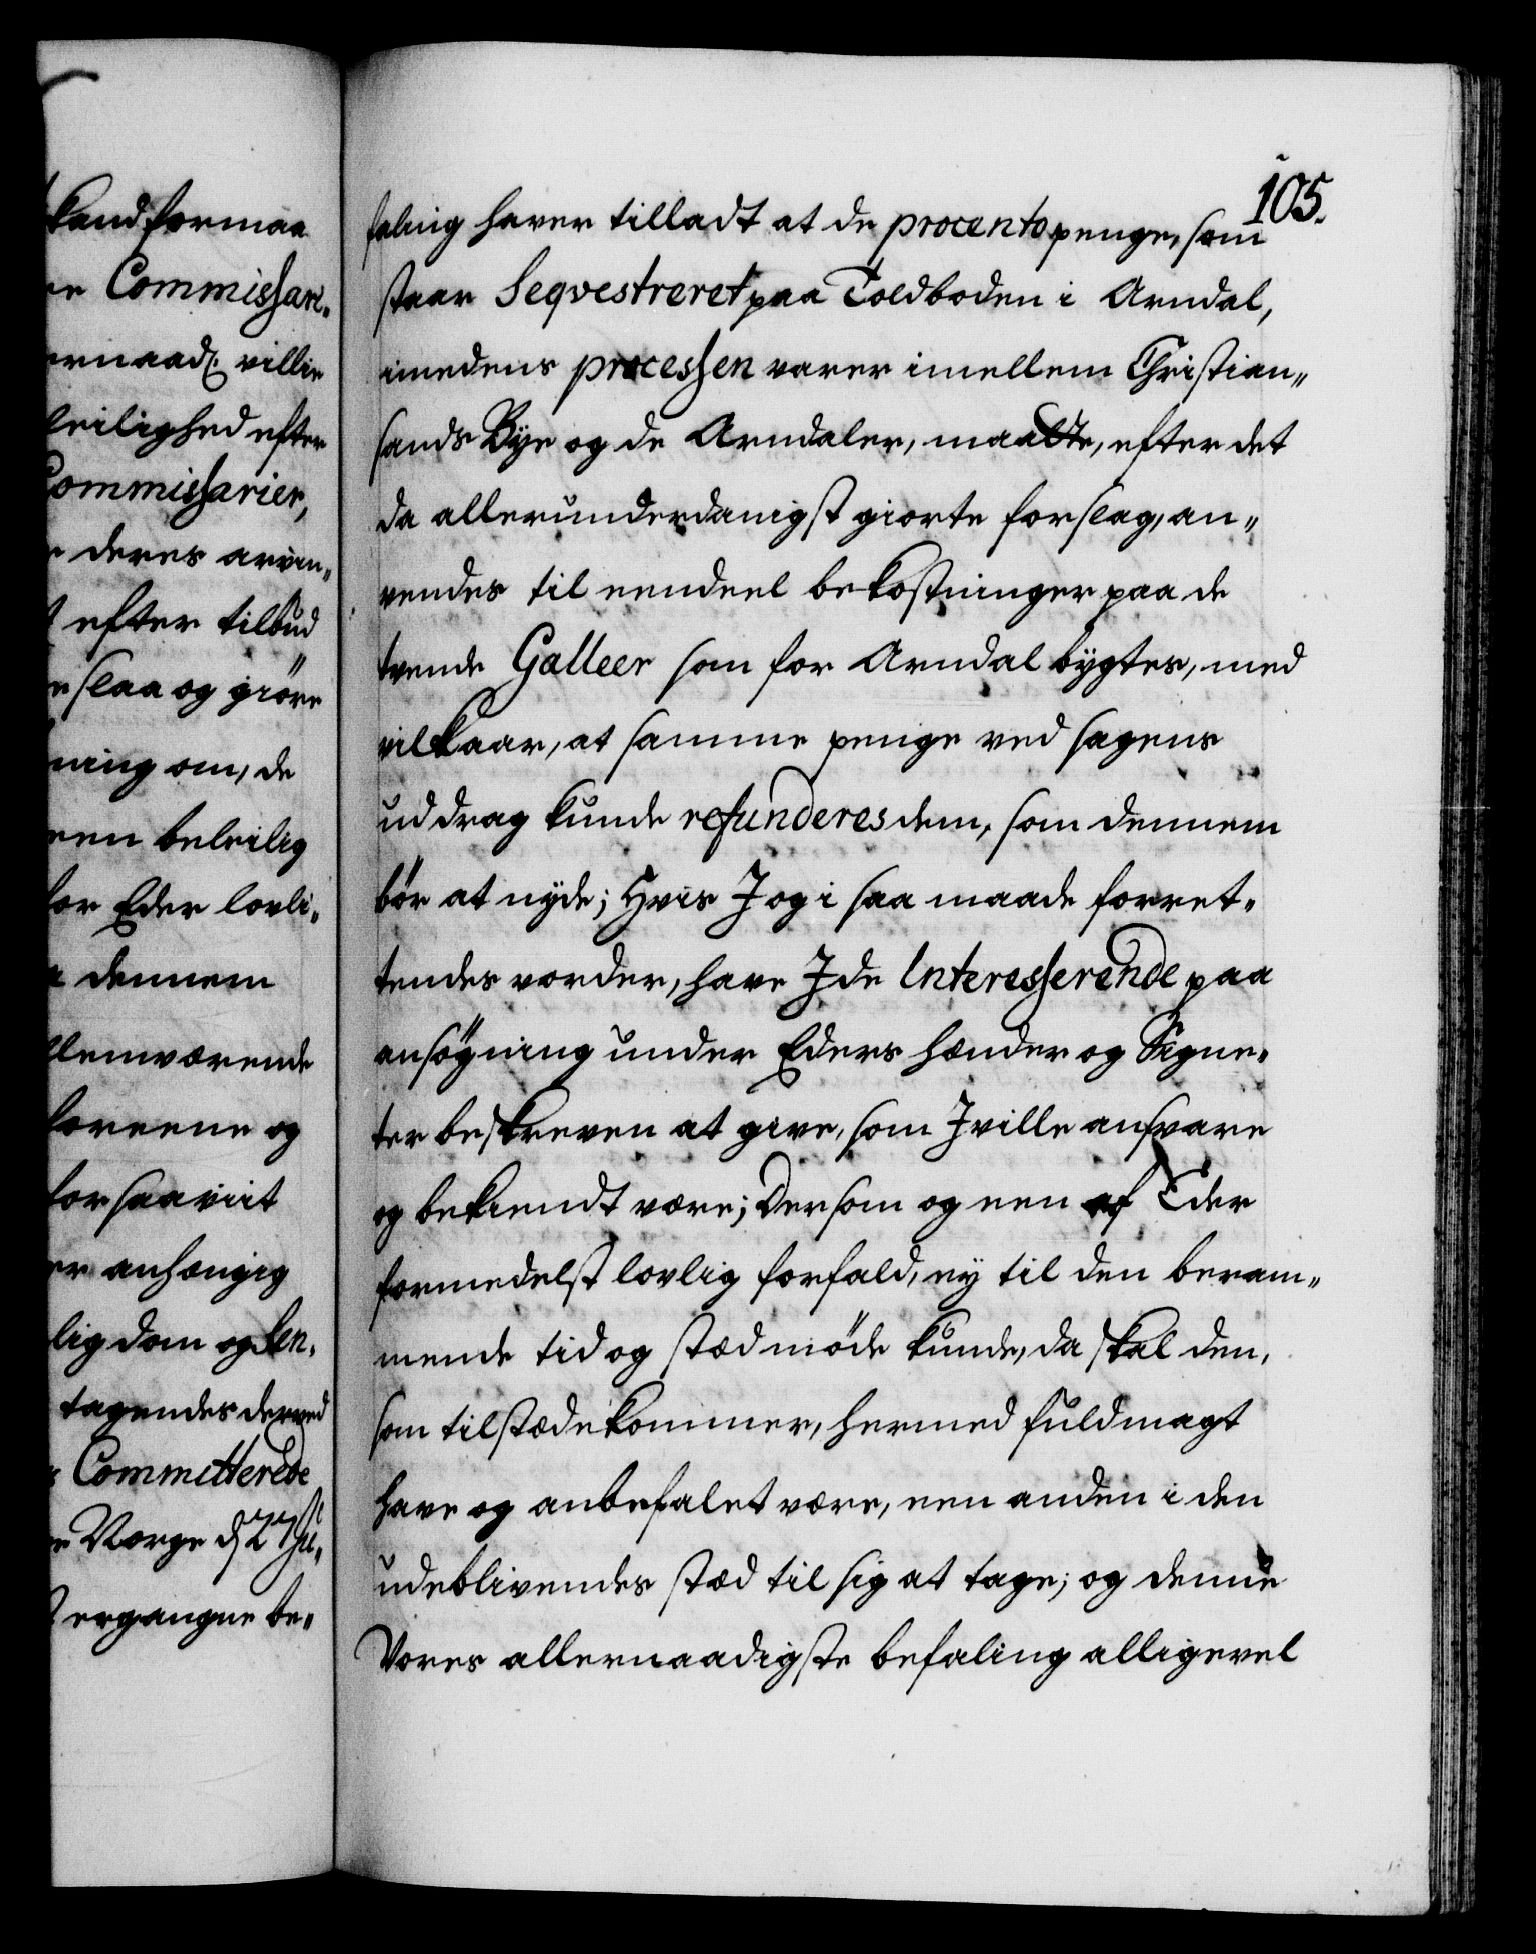 kand formaa
re Commissari-
ernaad. villie
leilighed efter
Commissarier,
deres arven„
efter tilbud
e slaa og giøre
ning om, de
een beleilig
for Eder lovli„
dennem
llemværende
foreene og
for saa viit
er anhængig
lig dom og Sen„
tagendes derved
Committerede
e Norge d 27 Ju„
ergangne be„
105.
faling haver tilladt at de procento penge, som
staar Seqvestreret paa Toldboden i Arndal,
imedens processen varer imellem Christian„
sands Bye og de Arndaler, maatte, efter det
da allerunderdanigst giorte forslag, an„
vendes til eendeel bekostninger paa de
tvende Galleer som for Arndal bygtes, med
vilkaar, at samme penge ved sagens
uddrag kunde refunderes dem, som dennem
bør at nyde; Hvis I og i saa maade forret„
tendes vorder, have I de Interesserende paa
ansøgning under Eders hænder og Signe„
ter beskreven at give, som I ville ansvare
og bekiendt være; Dersom og een af Eder
formedelst lovlig forfald, ey til den beram„
mende tid og stæd møde kunde, da skal den,
som tilstæde kommer, hermed fuldmagt
have og anbefalet være, een anden i den
udeblivendes stæd til sig at tage; og denne
Vores allernaadigste befaling alligevel